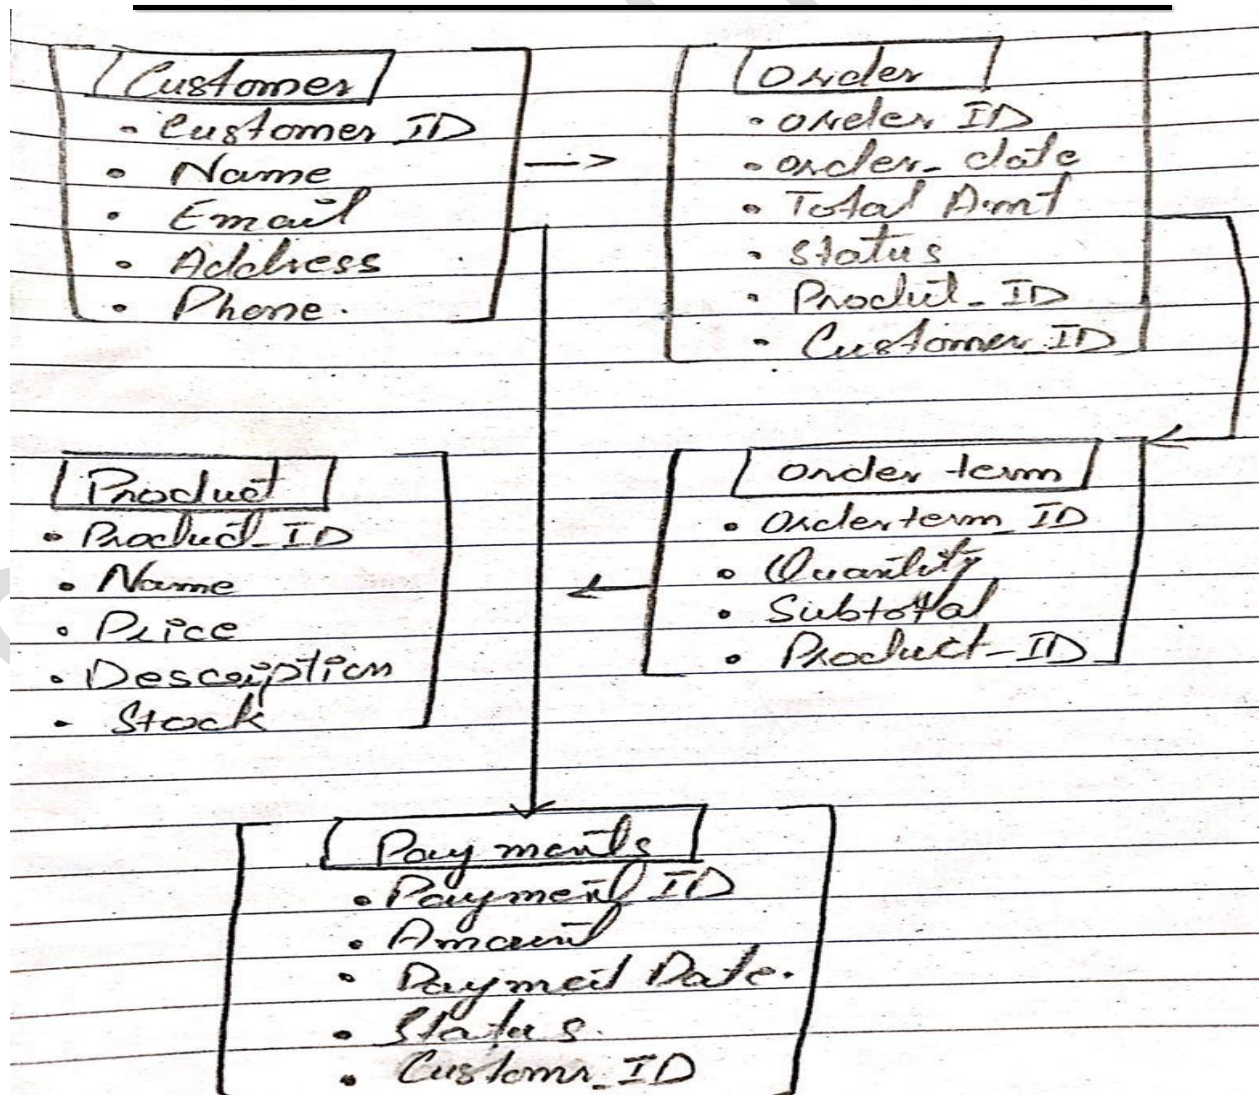 Customer
• Customer ID
• Name
• Email
• Address
• Phone.
Order
• order ID
• order_date
• Total Amt
• Status
• Produt_ID
• Customer_ID
Product
• Product_ID
• Name
• Price
• Description
• Stock
order term
• Orderterm_ID
• Quantity
• Subtotal
• Product_ID
Payments
• Payment ID
• Amount
• Payment Date.
• Status.
• Customr_ID